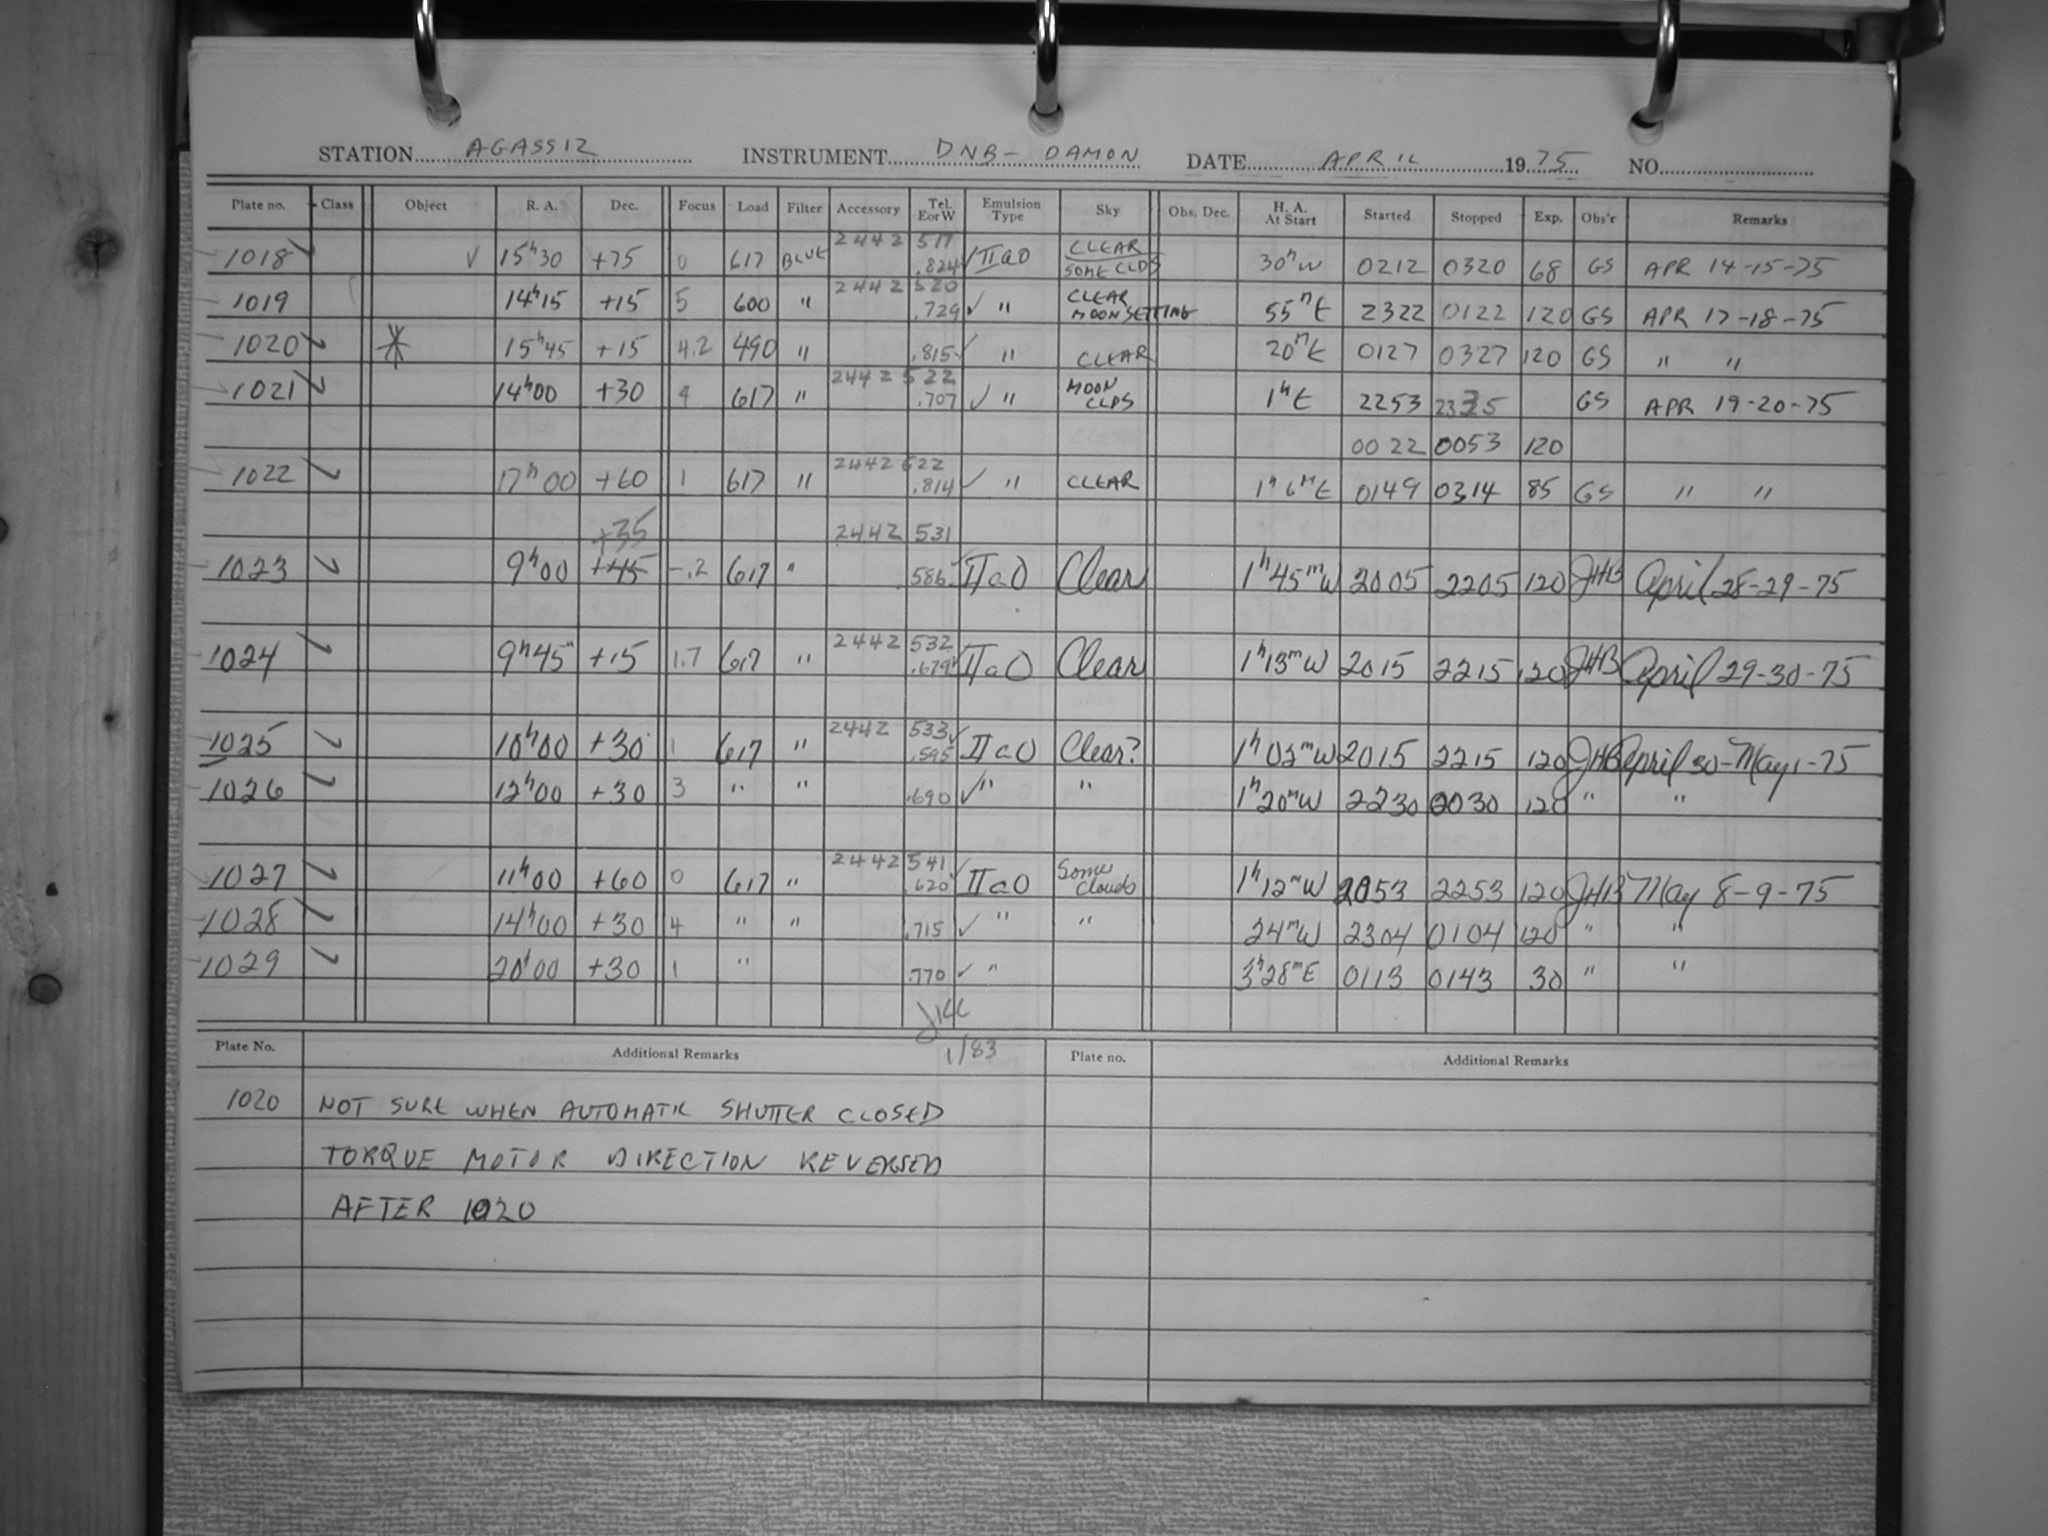 STATION AGASSIZ INSTRUMENT DNB- DAMON DATE APRIL 1975 NO.
Plate no. Class Object R. A. Dec. Focus Load Filter Accessory Tel. E or W Emulsion Type Sky Obs. Dec. H. A. At Start Started Stopped Exp. Obs'r Remarks
2442 517 CLEAR
1018 ✓ ✓ 15h30 +75 0 617 BLUE .824 ✓ IIaO SOME CLDS 30m W 0212 0320 68 GS APR 14-15-75
2442 520 CLEAR
1019 14h15 +15 5 600 " .729 ✓ " MOON SETTING 55m E 2322 0122 120 GS APR 17-18-75
1020 ✓ * 15h45 +15 4.2 490 " .815 ✓ " CLEAR 20m E 0127 0327 120 GS " "
2442 522 MOON
1021 ✓ 14h00 +30 4 617 " .707 ✓ " CLDS 1h E 2253 2335 GS APR 19-20-75
0022 0053 120
2442 522
1022 ✓ 17h00 +60 1 617 " .814 ✓ " CLEAR 1h 6m E 0149 0314 85 GS " "
+35 2442 531
1023 ✓ 9h00 +45 -.2 617 " .586 ✓ IIaO Clear 1h45m W 2005 2205 120 JHB April 28-29-75
2442 532
1024 ✓ 9h45m +15 1.7 617 " .679 ✓ IIaO Clear 1h13m W 2015 2215 120 JHB April 29-30-75
2442 533
1025 ✓ 10h00 +30 1 617 " .595 ✓ IIaO Clear? 1h03m W 2015 2215 120 JHB April 30-May 1-75
1026 ✓ 12h00 +30 3 " " .690 ✓ " " 1h20m W 2230 0030 120 " "
2442 541 Some
1027 ✓ 11h00 +60 0 617 " .620 ✓ IIaO Clouds 1h12m W 2053 2253 120 JHB May 8-9-75
1028 ✓ 14h00 +30 4 " " .715 ✓ " " 24m W 2304 0104 120 " "
1029 ✓ 20h00 +30 1 " .770 ✓ " 3h28m E 0113 0143 30 " "
1/83
Plate No. Additional Remarks Plate no. Additional Remarks
1020 NOT SURE WHEN AUTOMATIC SHUTTER CLOSED
TORQUE MOTOR DIRECTION REVERSED
AFTER 1020